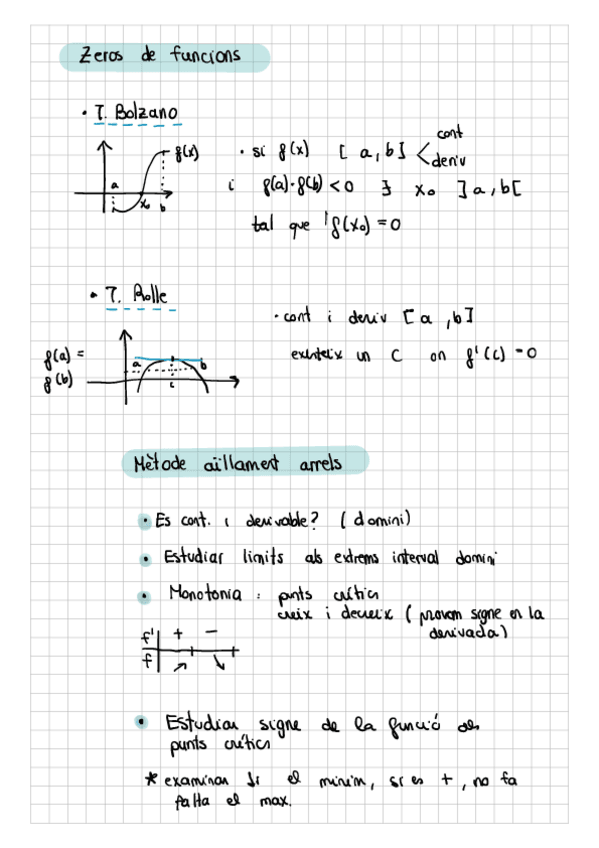 Zeros de funcions
• T. Bolzano
f(x)
a
x₀
b
• si f(x) [a, b] < cont
deriv
i f(a)·f(b) < 0 ∃ x₀ ]a, b[
tal que f(x₀) = 0
• T. Rolle
f(a) =
f(b)
a
b
c
• cont i deriv [a, b]
existeix un C on f'(c) = 0
Mètode aïllament arrels
• Es cont. i derivable? (domini)
• Estudiar limits als extrems interval domini
• Monotonia: punts crítics
creix i decreix (provam signe en la
derivada)
f' + −
f ↗ ↘
• Estudiar signe de la funció als
punts crítics
* examinar si el minim, si es +, no fa
falta el max.